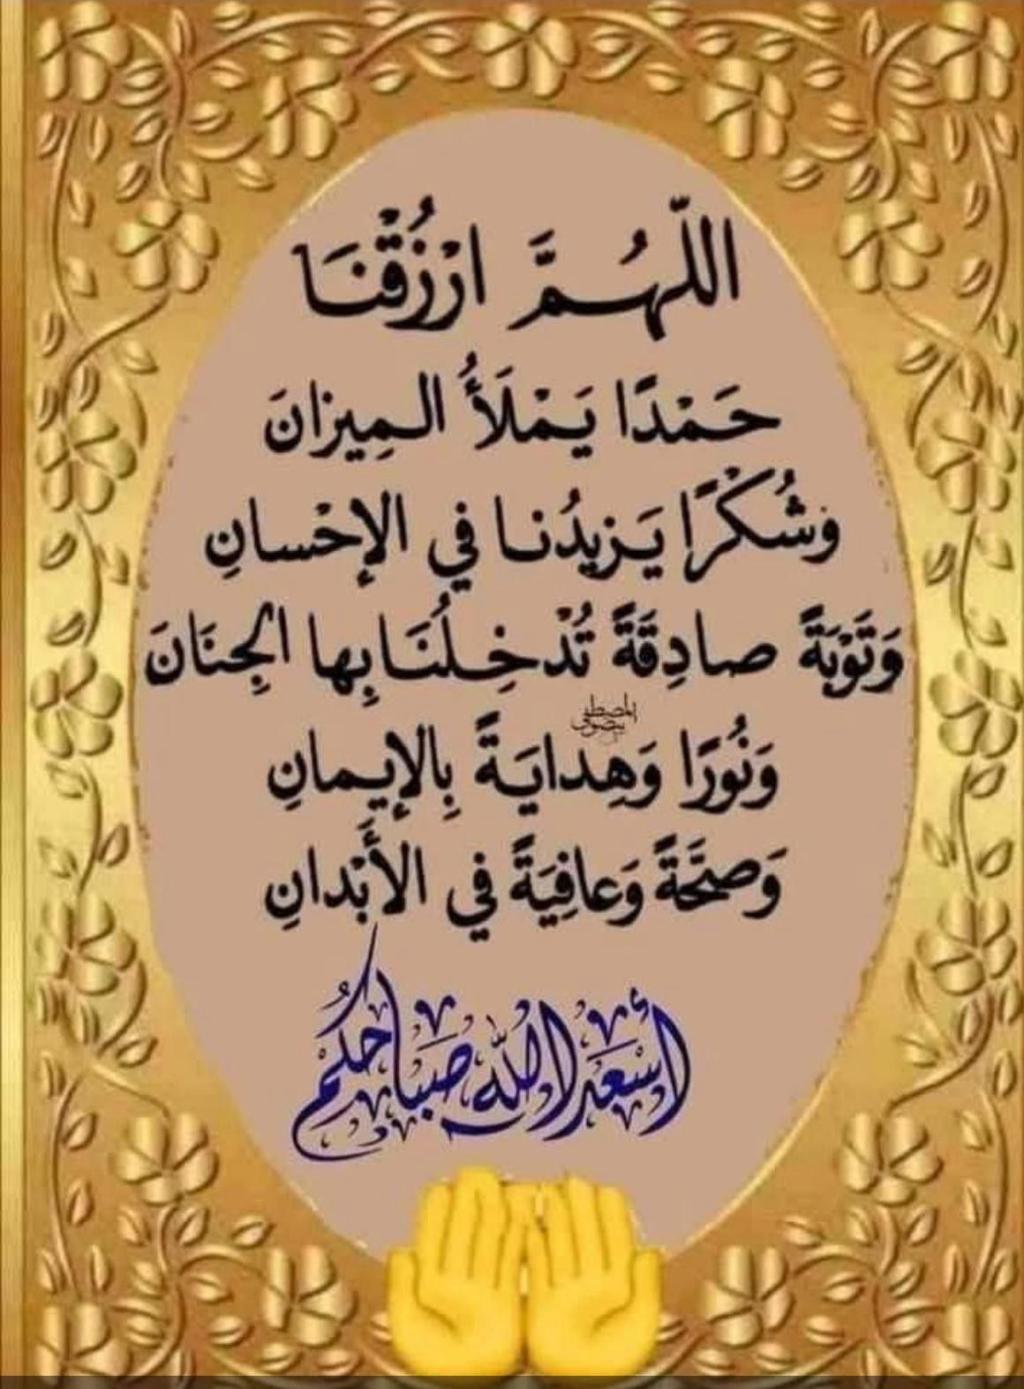 اللّهُمَّ ارْزُقْنَا
حَمْدًا يَمْلَأُ المِيزانَ
وشُكْرًا يَزِيدُنا في الإحْسانِ
وَتَوْبَةً صادِقَةً تُدْخِلُنَا بِها الجِنَانَ
وَنُورًا وَهِدايَةً بِالإيمانِ
وَصِحَّةً وَعافِيَةً في الأَبْدانِ
أسْعَدَ اللَّه صَبَاحَكُمْ